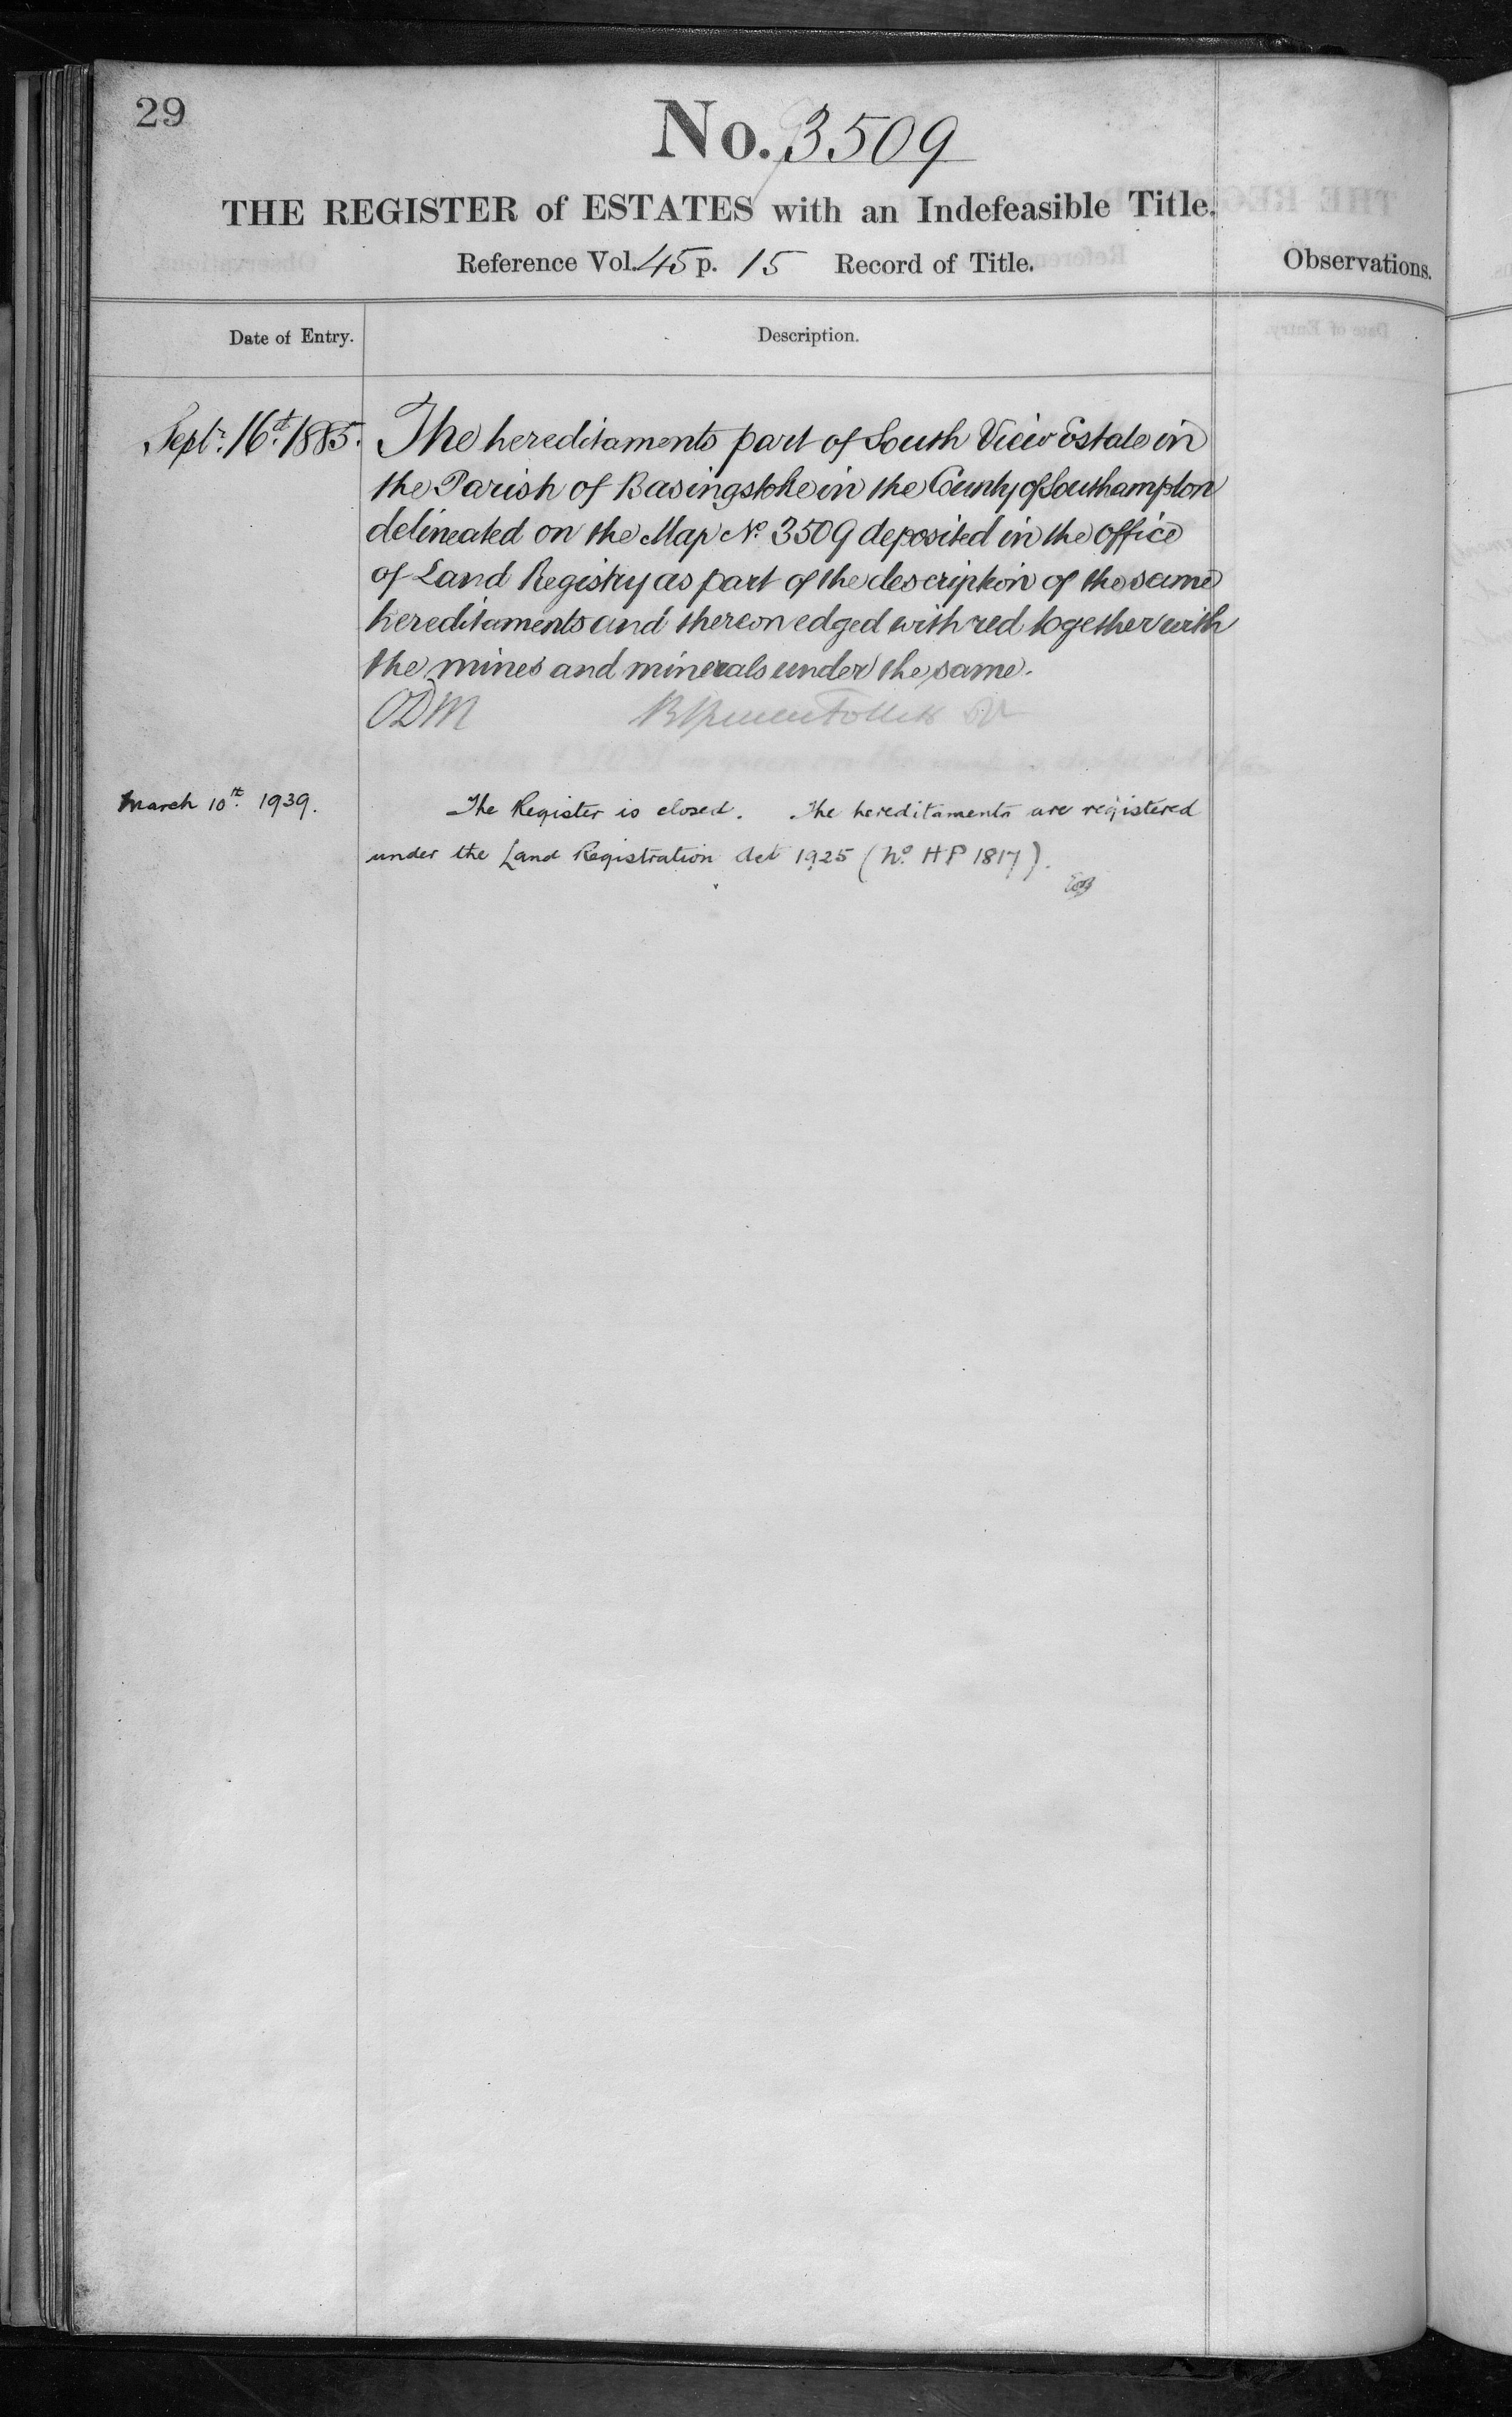 29
No. 3509
THE REGISTER of ESTATES with an Indefeasible Title.
Reference Vol. 45 p. 15 Record of Title.
Observations.
Date of Entry.
Description.
Septr. 16th. 1885. The hereditaments part of South View Estate in
the Parish of Basingstoke in the County of Southampton
delineated on the Map No. 3509 deposited in the office
of Land Registry as part of the description of the same
hereditaments and thereon edged with red together with
the mines and minerals under the same.
ODM
March 10th. 1939. The Register is closed. The hereditaments are registered
under the Land Registration Act 1925 (No. HP 1817).